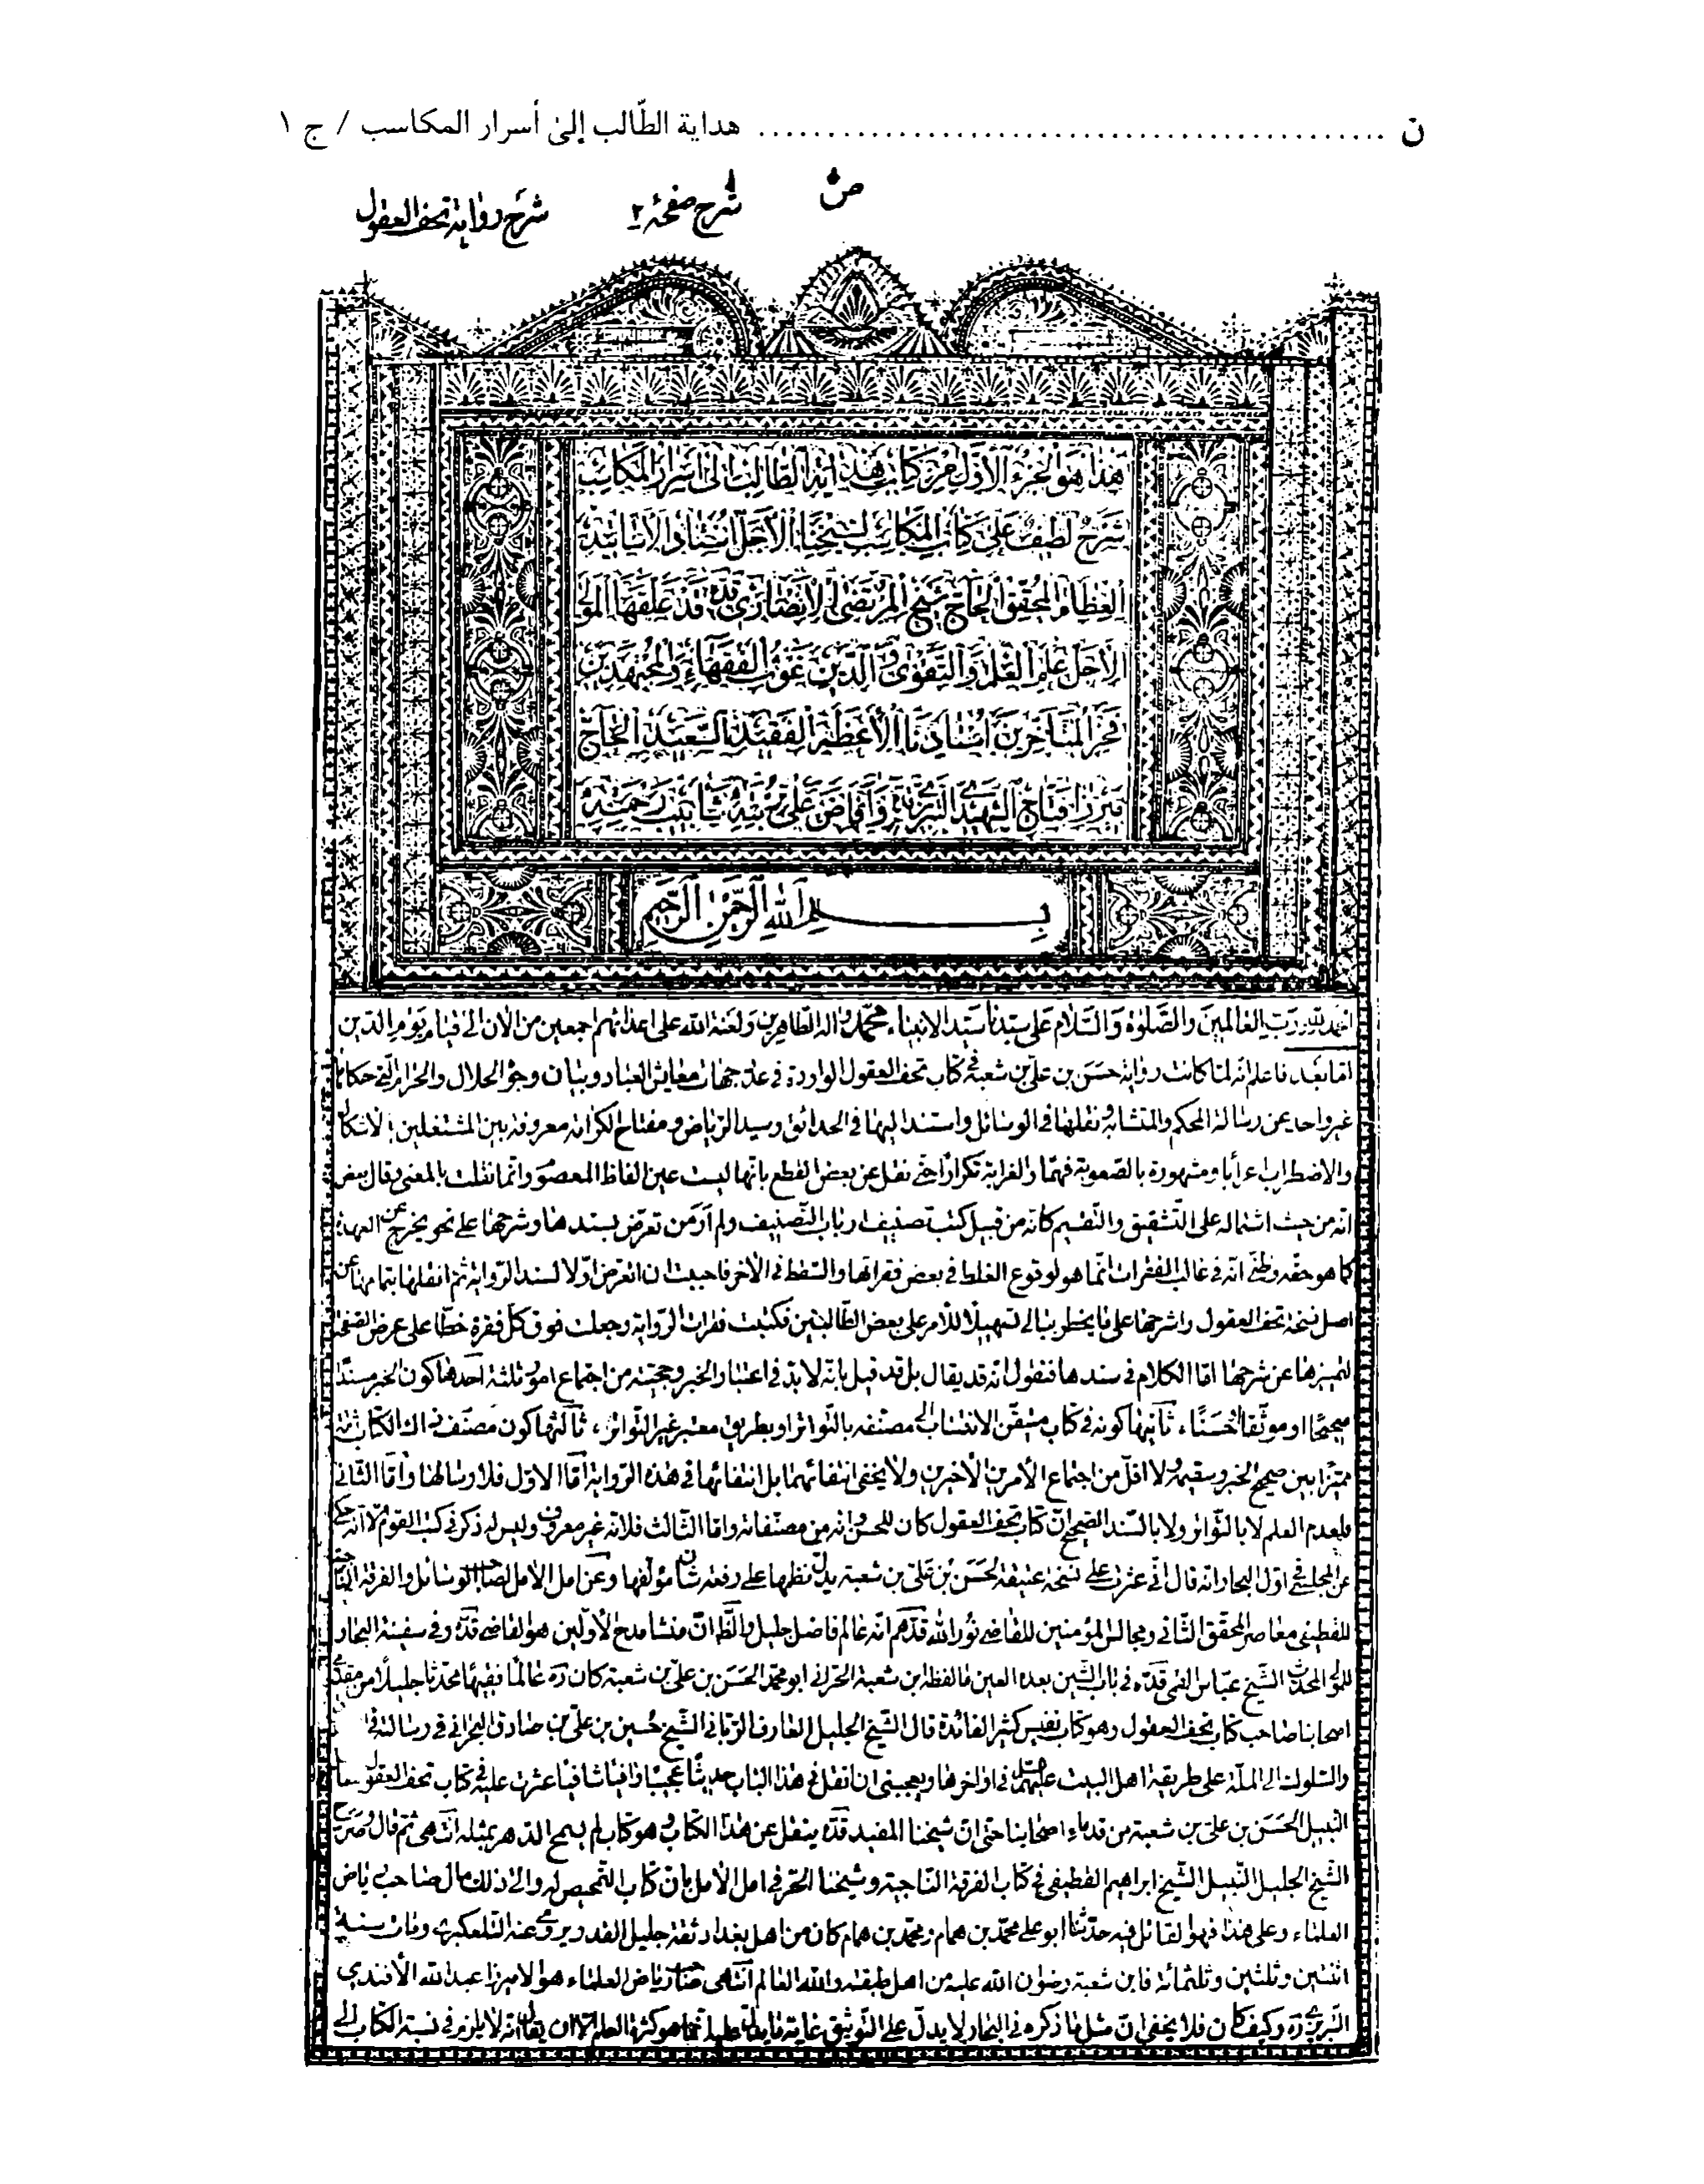 ن ............................................ هداية الطّالب إلىٰ أسرار المكاسب / ج ١
شرح صفحۀ ٢ شرح رواية تحف العقول
هذا هو الجزء الأوّل من كتاب هداية الطالب الى اسرار المكاسب
شرح لطيف على كتاب المكاسب لشيخنا الأجلّ استاد الأساتيد
العظام المحقق الحاج شيخ المرتضى الأنصاري قده قد علقها المولى
الأجل علم العلم والتقوى والدين غوث الفقهاء والمجتهدين
فخر المتأخرين استادنا الأعظم الفقيد السعيد الحاج
ميرزا فتاح الشهيدي التبريزي وافاض على تربته شابيب رحمته
بسم الله الرحمن الرحيم
الحمد لله رب العالمين والصلوة والسلام على سيدنا سيد الانبياء محمد واله الطاهرين ولعنة الله على اعدائهم اجمعين من الان الى قيام يوم الدين
اما بعد فاعلم انه لما كانت رواية حسن بن على بن شعبة في كتاب تحف العقول الواردة في عدّ جهات معايش العباد وبيان وجوه الحلال والحرام التي حكاها
غير واحد عن رسالة المحكم والمتشابه ونقلها في الوسائل واستند اليها في الحدائق وسيد الرياض ومفتاح الكرامة معروفة بين المشتغلين بالاشكال
والاضطراب اعرابا ومشهورة بالصّعوبة فهما والغرابة تكرارا حتى نقل عن بعض القطع بانها ليست عين الفاظ المعصوم وانما نقلت بالمعنى وقال بعض
انه من حيث اشتماله على التشقيق والتقسيم كانه من قبيل كتب تصنيف ارباب التصنيف ولم أر من تعرض بسندها وشرحها على نحو يخرج عن العهدة
كما هو حقه وظنّي انه في غالب الفقرات انما هو لوقوع الغلط في بعض فقراتها والسّقط في الآخر فاحببت ان اتعرض اوّلا لسند الرواية ثم انقلها بتمامها عن
اصل نسخة تحف العقول واشرحها على ما يخطر ببالي تسهيلا للامر على بعض الطّالبين فكتبت فقرات الرواية وجعلت فوق كل فقرة خطّا على عرض الصفحة
لتميزها عن شرحها امّا الكلام في سندها فنقول انه قد يقال بل قد قيل بانه لا بدّ في اعتبار الخبر وحجيته من اجتماع امور ثلثة احدها كون الخبر مسندا
صحيحا او موثقا او حسنا، ثانيها كونه في كتاب متيقن الانتساب الى مصنفه بالتواتر او بطريق معتبر غير التواتر، ثالثها كون مصنف ذاك الكتاب ثقة
مميزا بين صحيح الخبر وسقيمه ولا اقلّ من اجتماع الأمرين الأخيرين ولا يخفى انتفائهما بل انتفائها في هذه الرواية امّا الاوّل فلارسالها وامّا الثاني
فلعدم العلم لا بالتّواتر ولا بالسّند الصّحيح انّ كتاب تحف العقول كان للحسن وانه من مصنّفاته وامّا الثّالث فلانه غير معروف وليس له ذكر في كتب القوم الا انه حكى
عن المجلسي في اول البحار انه قال انّي عثرت على نسخة عتيقة لحسن بن على بن شعبة يدل نظمها على رفعة شان مؤلّفها وعن امل الآمل لصاحب الوسائل والفرقة الناجية
للقطيفي معاصر المحقق الثّاني ومجالس المؤمنين للقاضي نور الله قدهم انّه عالم فاضل جليل والظّ انّ منشا مدح الأولين هو القاضي قده وفي سفينة البحار
للمولى المحدث الشيخ عبّاس القمي قده في باب الشين بعده العين ما لفظه ابن شعبة الحرّاني ابو محمد الحسن بن على بن شعبة كان ره عالما فقيها محدثا جليلا من مقدّمي
اصحابنا صاحب كتاب تحف العقول وهو كتاب نفيس كثير الفائدة قال الشّيخ الجليل العارف الرّباني الشّيخ حسين بن على بن صادق البحراني في رسالته في
والسّلوك الى الملّة على طريقة اهل البيت عليهم السلام في اواخرها ويعجبني ان انقل في هذا الباب حديثا عجيبا وافيا شافيا عثرت عليه في كتاب تحف العقول
النبيل الحسن بن على بن شعبة من قدماء اصحابنا حتى انّ شيخنا المفيد قده ينقل عن هذا الكتاب وهو كتاب لم يسمح الدّهر بمثله انتهى ثم قال وصرّح
الشّيخ الجليل النّبيل الشّيخ ابراهيم القطيفي في كتاب الفرقة النّاجية وشيخنا الحر في امل الآمل بان كتاب التّمحيص له والى ذلك مال صاحب رياض
العلماء وعلى هذا فهو القائل فيه حدّثنا ابو على محمّد بن همام ومحمّد بن همام كان من اهل بغداد ثقة جليل القدر يروي عنه التلعكبري ومات سنة
اثنتين وثلثين وثلثمائة فابن شعبة رضوان الله عليه من اهل طبقته والله العالم انتهى صاحب رياض العلماء هو الاميرزا عبد الله الأفندي
التبريزي ره وكيف كان فلا يخفى انّ مثل ما ذكره في البحار لا يدلّ على التّوثيق غاية ما يدل عليه انما هو كثرة العلم الا ان يقال انه لا يلزم في نسبة الكتاب الى